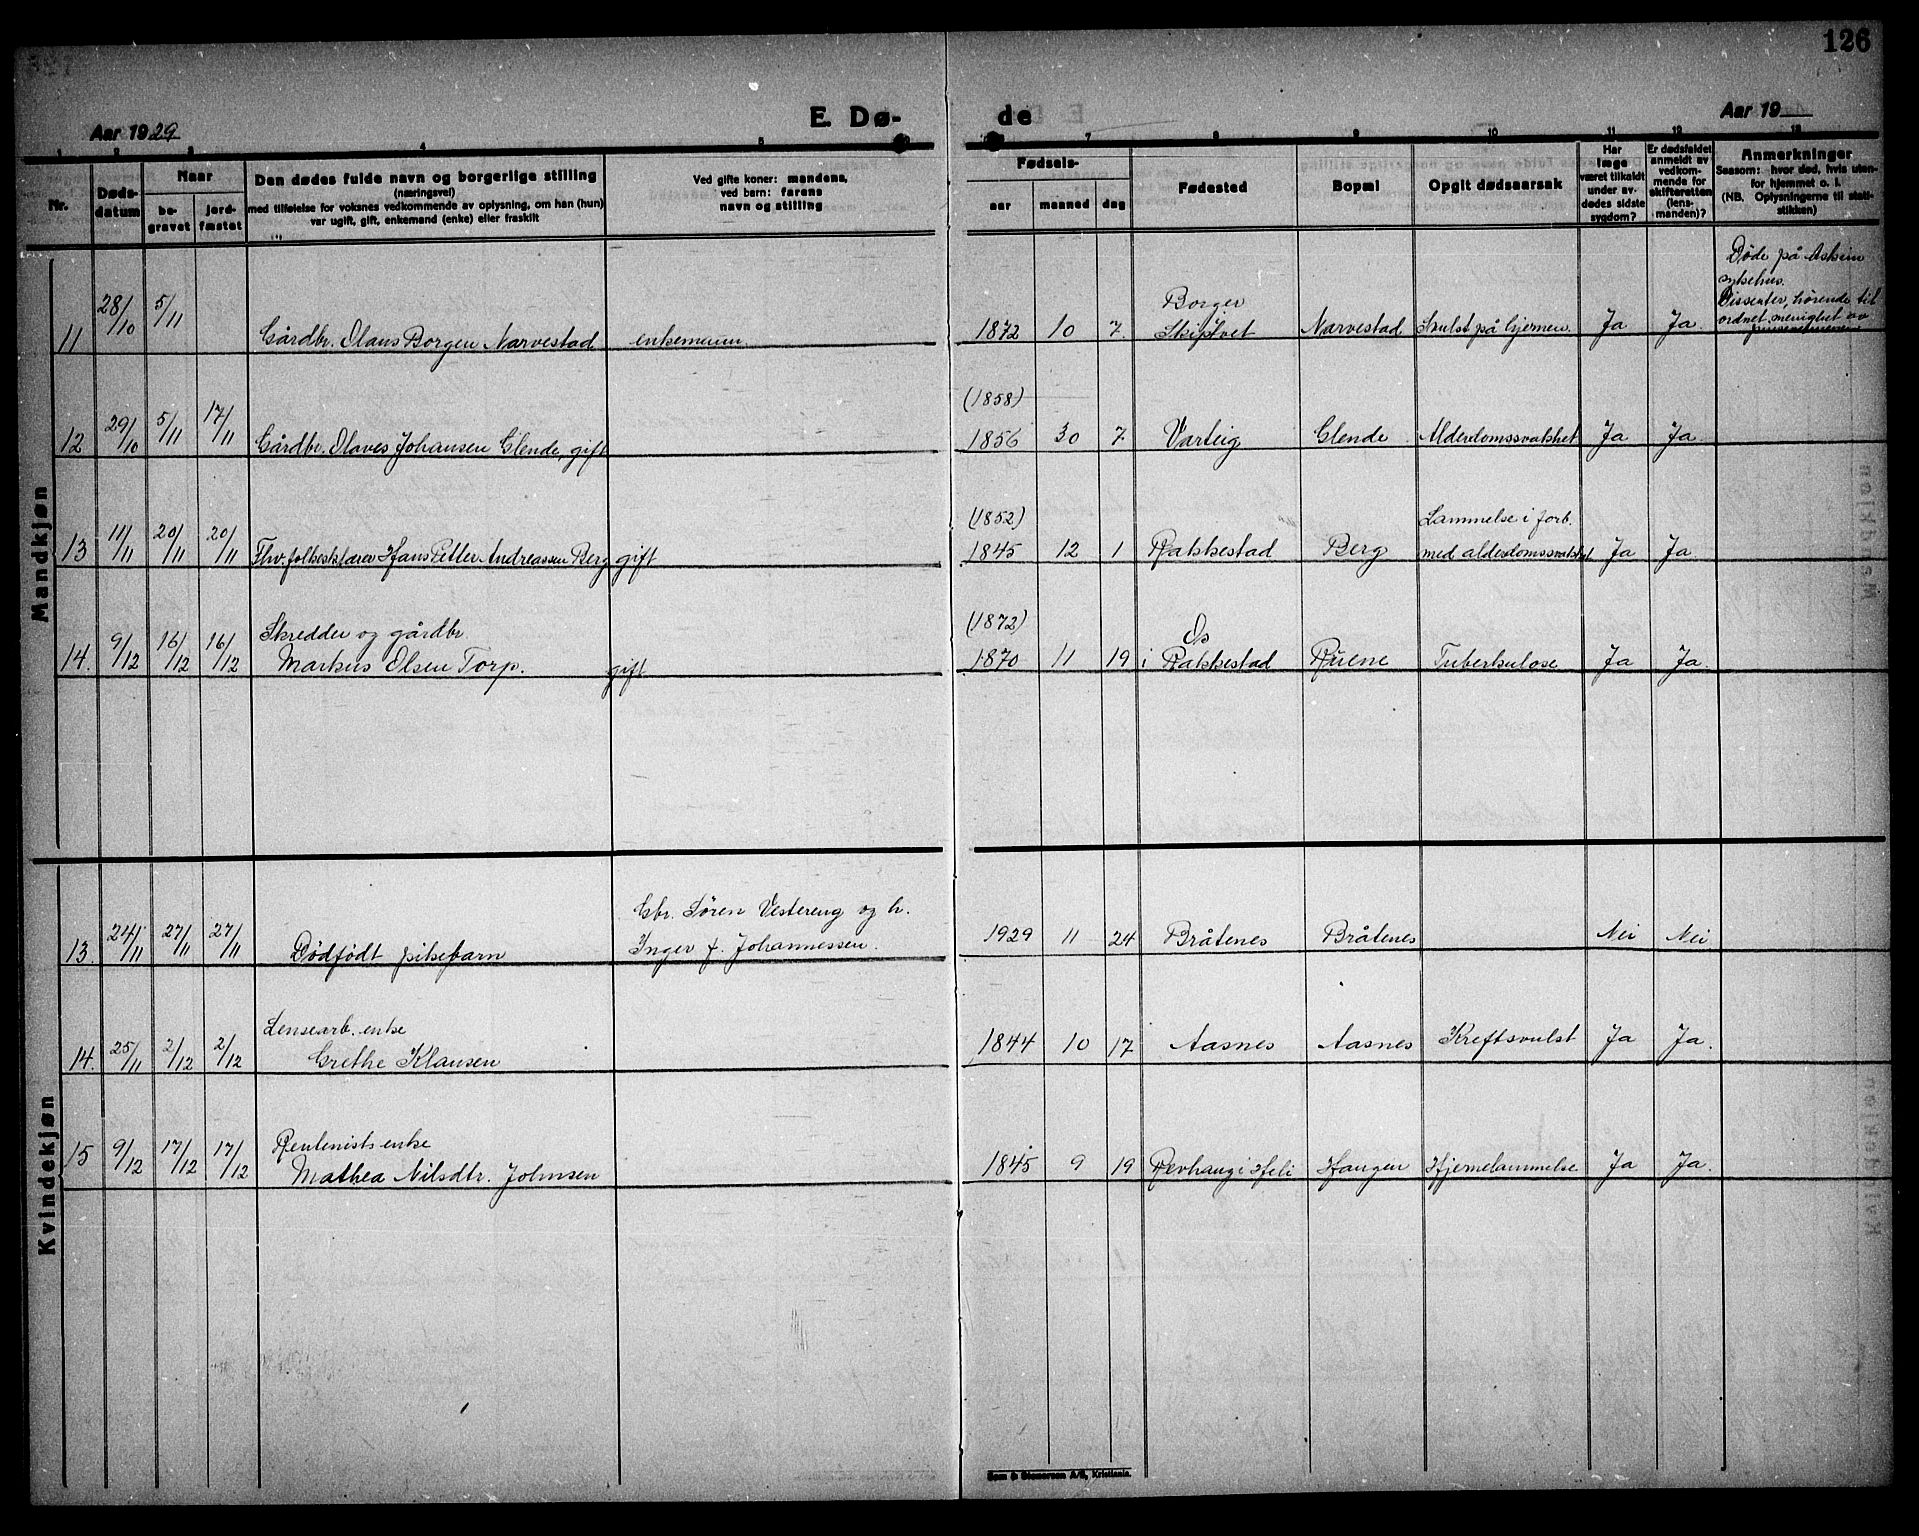 126
E. Dø- de
Aar 1929
Aar 19
1 2 3 4 5 7 8 9 10 11 12 13
Nr.
Døds-
datum
Naar
be-
gravet
jord-
fæstet
Den dødes fulde navn og borgerlige stilling
(næringsvei)
med tilføielse for voksnes vedkommende av oplysning, om han (hun)
var ugift, gift, enkemand (enke) eller fraskilt
Ved gifte koner: mandens,
ved børn: farens
navn og stilling
Fødsels-
aar maaned dag
Fødested
Bopæl
Opgit dødsaarsak
Har
læge
været tilkaldt
under av-
dødes sidste
sygdom?
Er dødsfaldet
anmeldt av
vedkom-
mende for
skifteretten
(lens-
manden)?
Anmerkninger
Saasom: hvor død, hvis uten-
for hjemmet o. l.
(NB. Oplysningerne til stati-
stikken)
Mandkjøn
Døde på Askim
sykehus.
Dissenter, hørende til
ordnet menighet av
11 28/10 5/11 Gårdbr. Olaus Borgen Narvestad enkemann. 1872 10 7. Borger Skiptvet Narvestad Svulst på hjernen. Ja Ja.
(1858)
12 29/10 5/11 17/11 Gårdbr. Olaves Johansen Glende, gift 1856 30 7. Varteig Glende Alderdomssvakhet Ja Ja
(1852) Lammelse i forb.
13 11/11 20/11 20/11 Fhv. folkeskolelærer Hans Petter Andreassen Berg gift 1845 12 1 Rakkestad Berg med alderdomssvakhet Ja Ja.
(1872)
Skredder og gårdbr. Os
14. 9/12 16/12 16/12 Markus Olsen Torp. gift 1870 11 19 i Rakkestad Ruene Tuberkulose Ja Ja.
Kvindekjøn
Gbr. Søren Vestereng og h.
13 24/11 27/11 27/11 Dødfødt pikebarn Inger f. Johannessen. 1929 11 24 Bråtenes Bråtenes Nei Nei
Lensearb. enke
14. 25/11 2/12 2/12 Grethe Klausen 1844 10 17 Aasnes Aasnes Kreftsvulst Ja Ja.
Rentenists enke
15 9/12 17/12 17/12 Mathea Nilsdtr. Johnsen 1845 9 19 Revhaug i Heli Haugen Hjernelammelse Ja Ja.
Sem & Stenersen A/S, Kristiania.